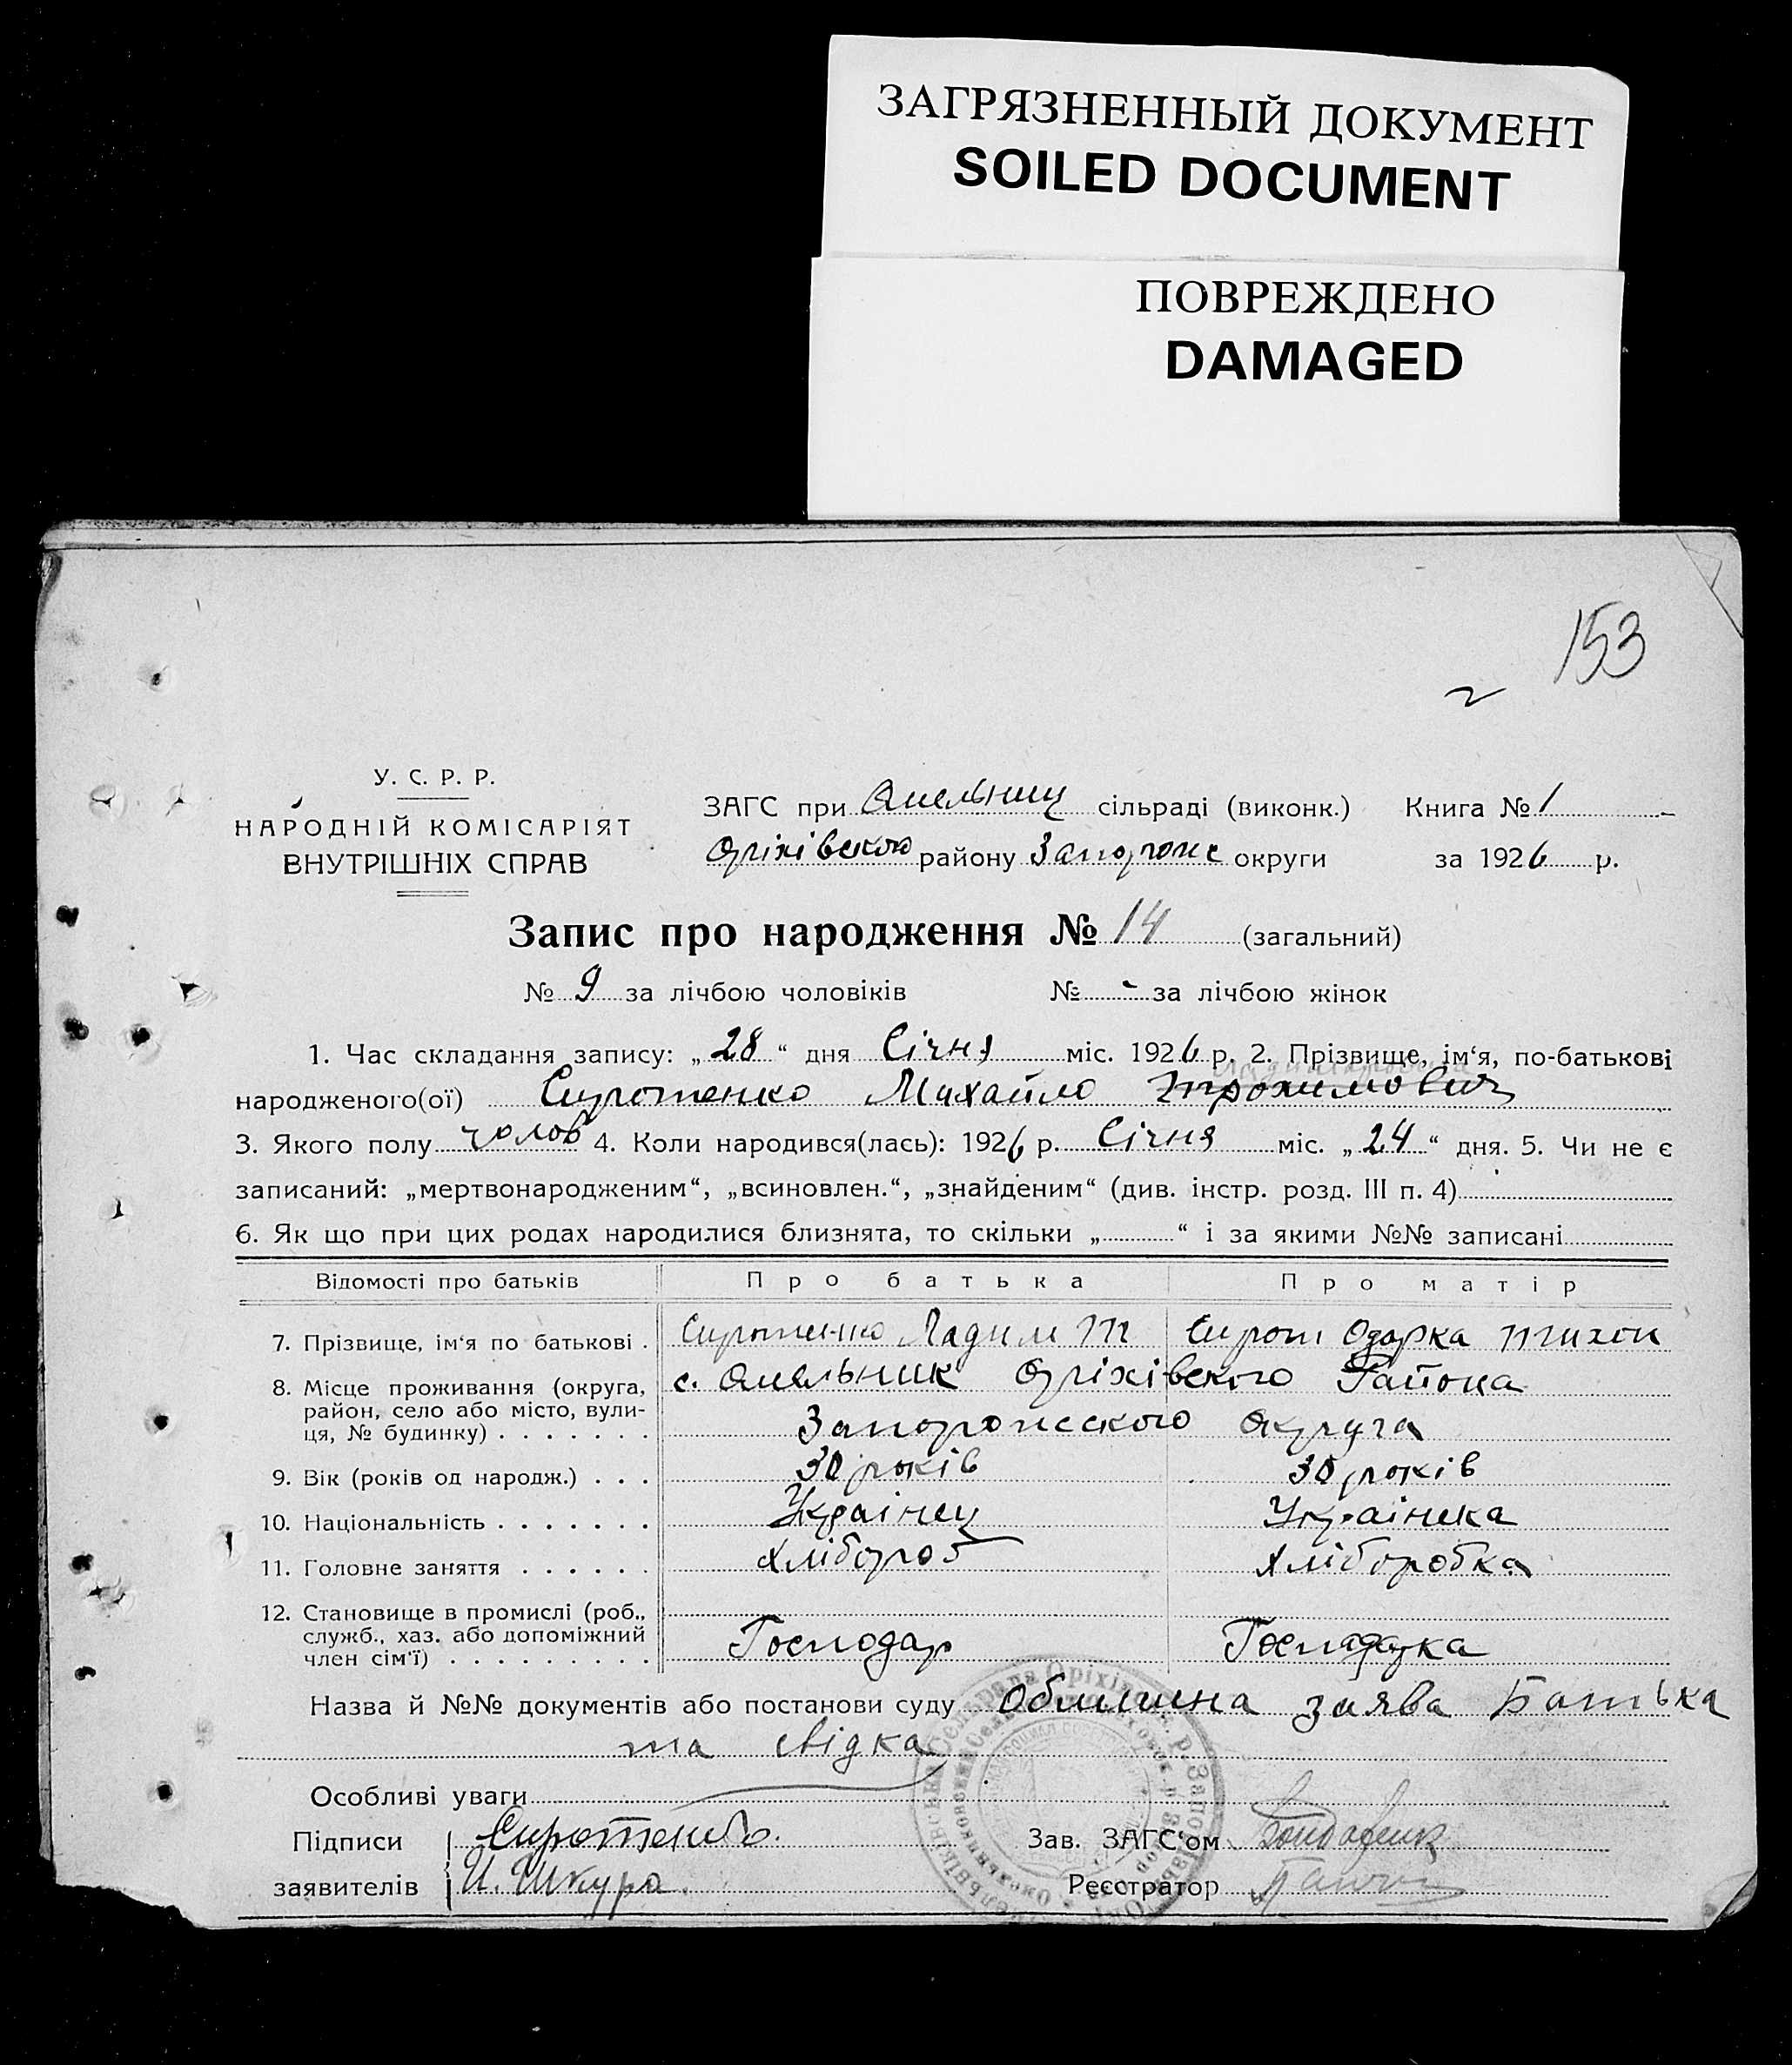 ЗАГРЯЗНЕННЫЙ ДОКУМЕНТ
SOILED DOCUMENT
ПОВРЕЖДЕНО
DAMAGED
153
У. С. Р. Р.
НАРОДНІЙ КОМІСАРІЯТ
ВНУТРІШНІХ СПРАВ
ЗАГС при Омельниц сільраді (виконк.) Книга № 1
Оріхівского району Запорожс округи за 1926 р.
Запис про народження № 14 (загальний)
№ 9 за лічбою чоловіків № - за лічбою жінок
1. Час складання запису: „28“ дня Січня міс. 1926 р. 2. Прізвище, ім‘я, по-батькові
народженого(ої) Сиротенко Михайло Трохимович
3. Якого полу чолов 4. Коли народився(лась): 1926 р. Січня міс. „24“ дня. 5. Чи не є
записаний: „мертвонародженим“, „всиновлен.“, „знайденим“ (див. інстр. розд. III п. 4)
6. Як що при цих родах народилися близнята, то скільки „ “ і за якими №№ записані
Відомості про батьків Про батька Про матір
7. Прізвище, ім‘я по батькові . Сиротенко Сирот Одарка Тихон
8. Місце проживання (округа, район, село або місто, вулиця, № будинку) с. Омельник Оріхівского Района
Запорожского Округа
9. Вік (років од народж.) . . . 30 років 30 років
10. Національність . . . . . . . Украінец Украінка
11. Головне заняття . . . . . . Хлібороб Хліборобка
12. Становище в промислі (роб., служб., хаз. або допоміжний член сім‘ї) . . . . . . . . . Господар Господарка
Назва й №№ документів або постанови суду заява Батька
та свідка
Особливі уваги
Підписи Сиротенко. Зав. ЗАГС‘ом
заявителів И. Шкура. Реєстратор